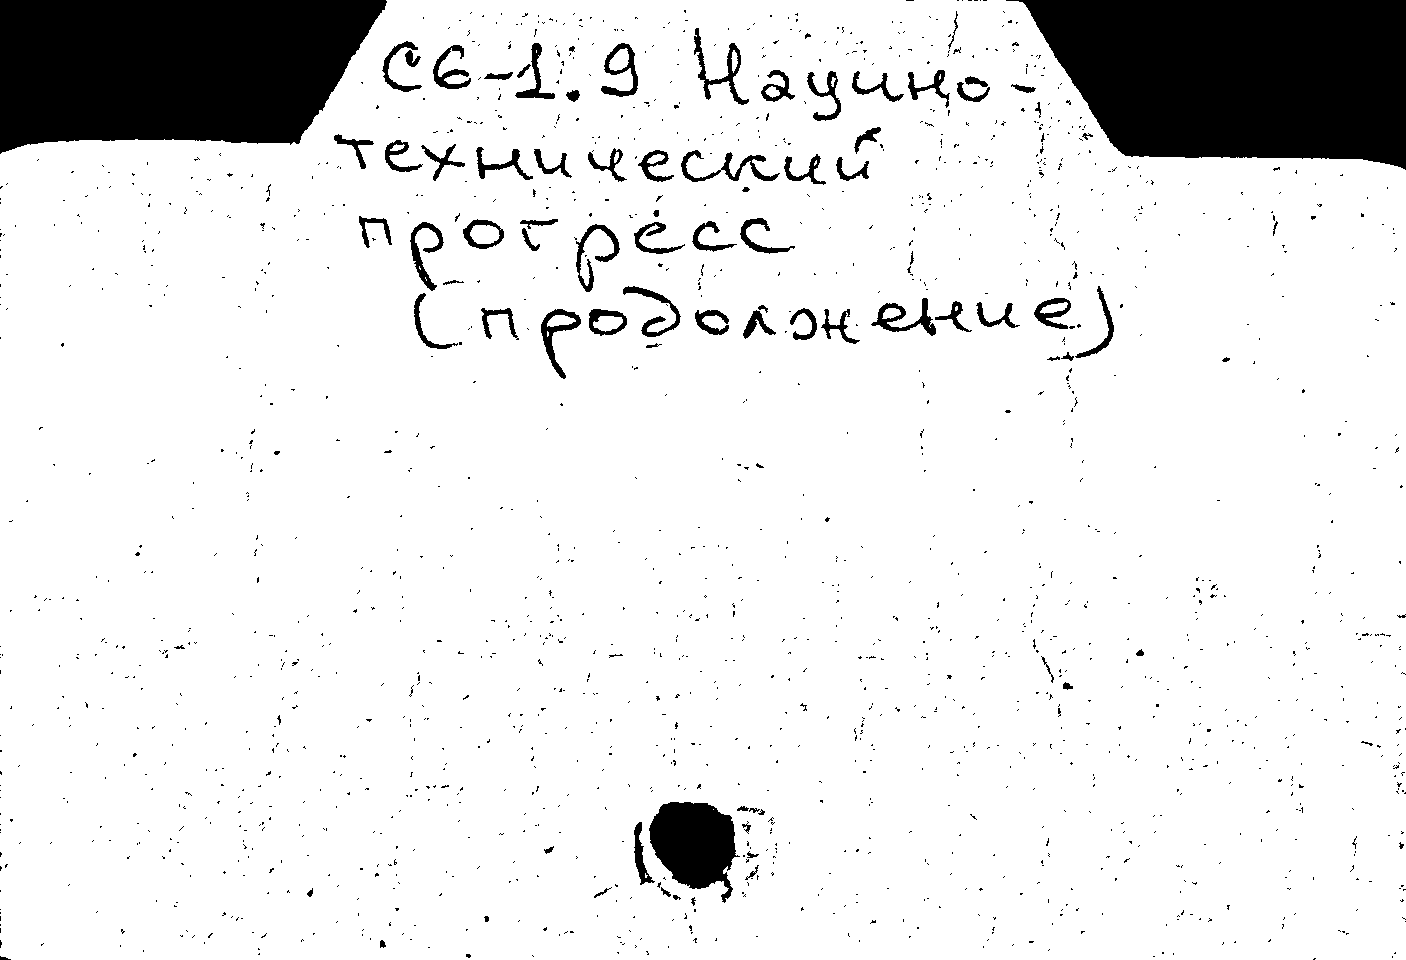 С6-1.9 Научно-
технический
прогресс
(продолжение)